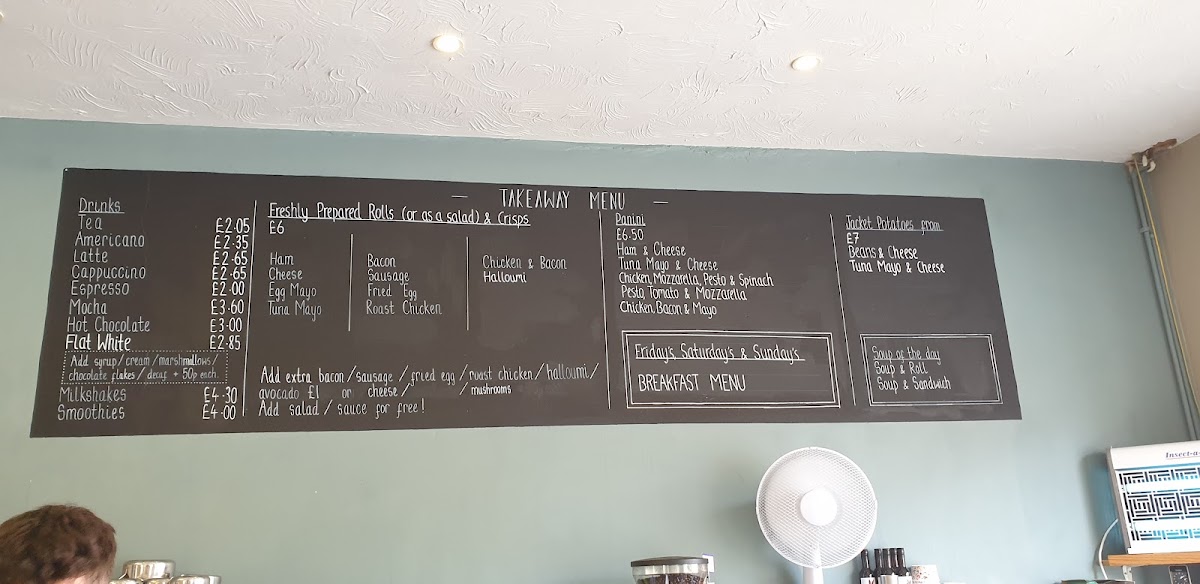 TAKEAWAY MENU
Drinks
Tea £2.05
Americano £2.35
Latte £2.65
Cappuccino £2.65
Espresso £2.00
Mocha £3.60
Hot Chocolate £3.00
Flat White £2.85
Add syrup/cream/marshmallows/
chocolate flakes/decaf + 50p each
Milkshakes £4.30
Smoothies £4.00
Freshly Prepared Rolls (or as a salad) & Crisps
£6
Ham
Cheese
Egg Mayo
Tuna Mayo
Bacon
Sausage
Fried Egg
Roast Chicken
Chicken & Bacon
Halloumi
Add extra bacon/sausage/fried egg/roast chicken/halloumi/
avocado £1 or cheese/ /mushrooms
Add salad/sauce for free!
Panini
£6.50
Ham & Cheese
Tuna Mayo & Cheese
Chicken, Mozzarella, Pesto & Spinach
Pesto, Tomato & Mozzarella
Chicken, Bacon & Mayo
Friday's, Saturday's & Sunday's
BREAKFAST MENU
Jacket Potatoes from
£7
Beans & Cheese
Tuna Mayo & Cheese
Soup of the day
Soup & Roll
Soup & Sandwich
Insect-a-